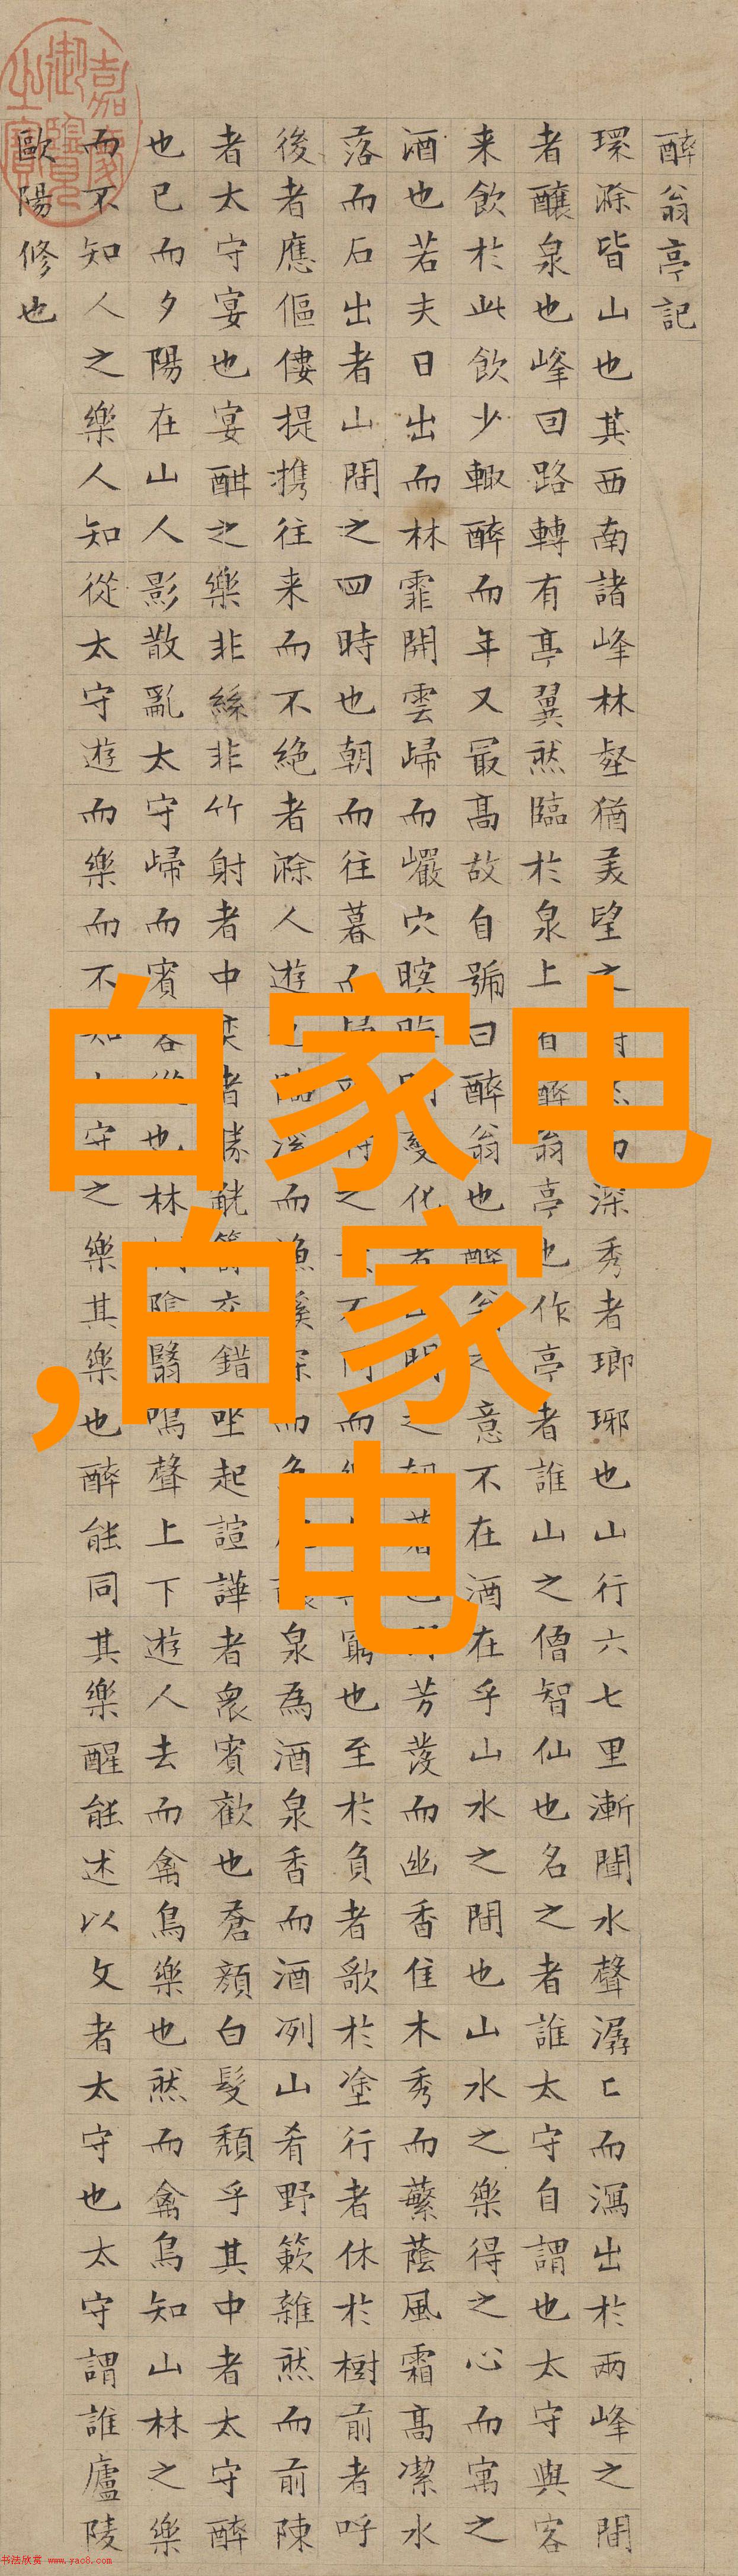 嘉慶御覽之寶
醉翁亭記
環滁皆山也其西南諸峰林壑猶美望之深秀者瑯琊也山行六七里漸聞水聲潺〻而瀉出於兩峰之間
者釀泉也峰回路轉有亭翼然臨於泉上有醉翁亭也作亭者誰山之僧智仙也名之者誰太守自謂也太守與客
来飲於此飲少輒醉而年又最高故自號曰醉翁也醉翁之意不在酒在乎山水之間也山水之樂得之心而寓之
酒也若夫日出而林霏開雲歸而巖穴暝晦明變化者山間之朝暮也野芳發而幽香佳木秀而繁蔭風霜高潔水
落而石出者山間之四時也朝而往暮而之不同而窮也至於負者歌於塗行者休於樹前者呼
後者應傴僂提攜往来而不絕者滁人遊也臨溪而漁溪深而魚泉為酒泉香而酒冽山肴野簌雜然而前陳
者太守宴也宴酣之樂非絲非竹射者中奕者勝觥籌交錯坐起諠譁者眾賓歡也蒼顏白髮頹乎其中者太守醉
也已而夕陽在山人影散亂太守歸而賓客從也林間陰翳鳴聲上下遊人去而禽鳥樂也然而禽鳥知山林之樂
而不知人之樂人知從太守遊而樂而不知太守之樂其樂也醉能同其樂醒能述以文者太守也太守謂誰廬陵
歐陽修也
白家电
,白家
电
书法欣赏 www.yac8.com